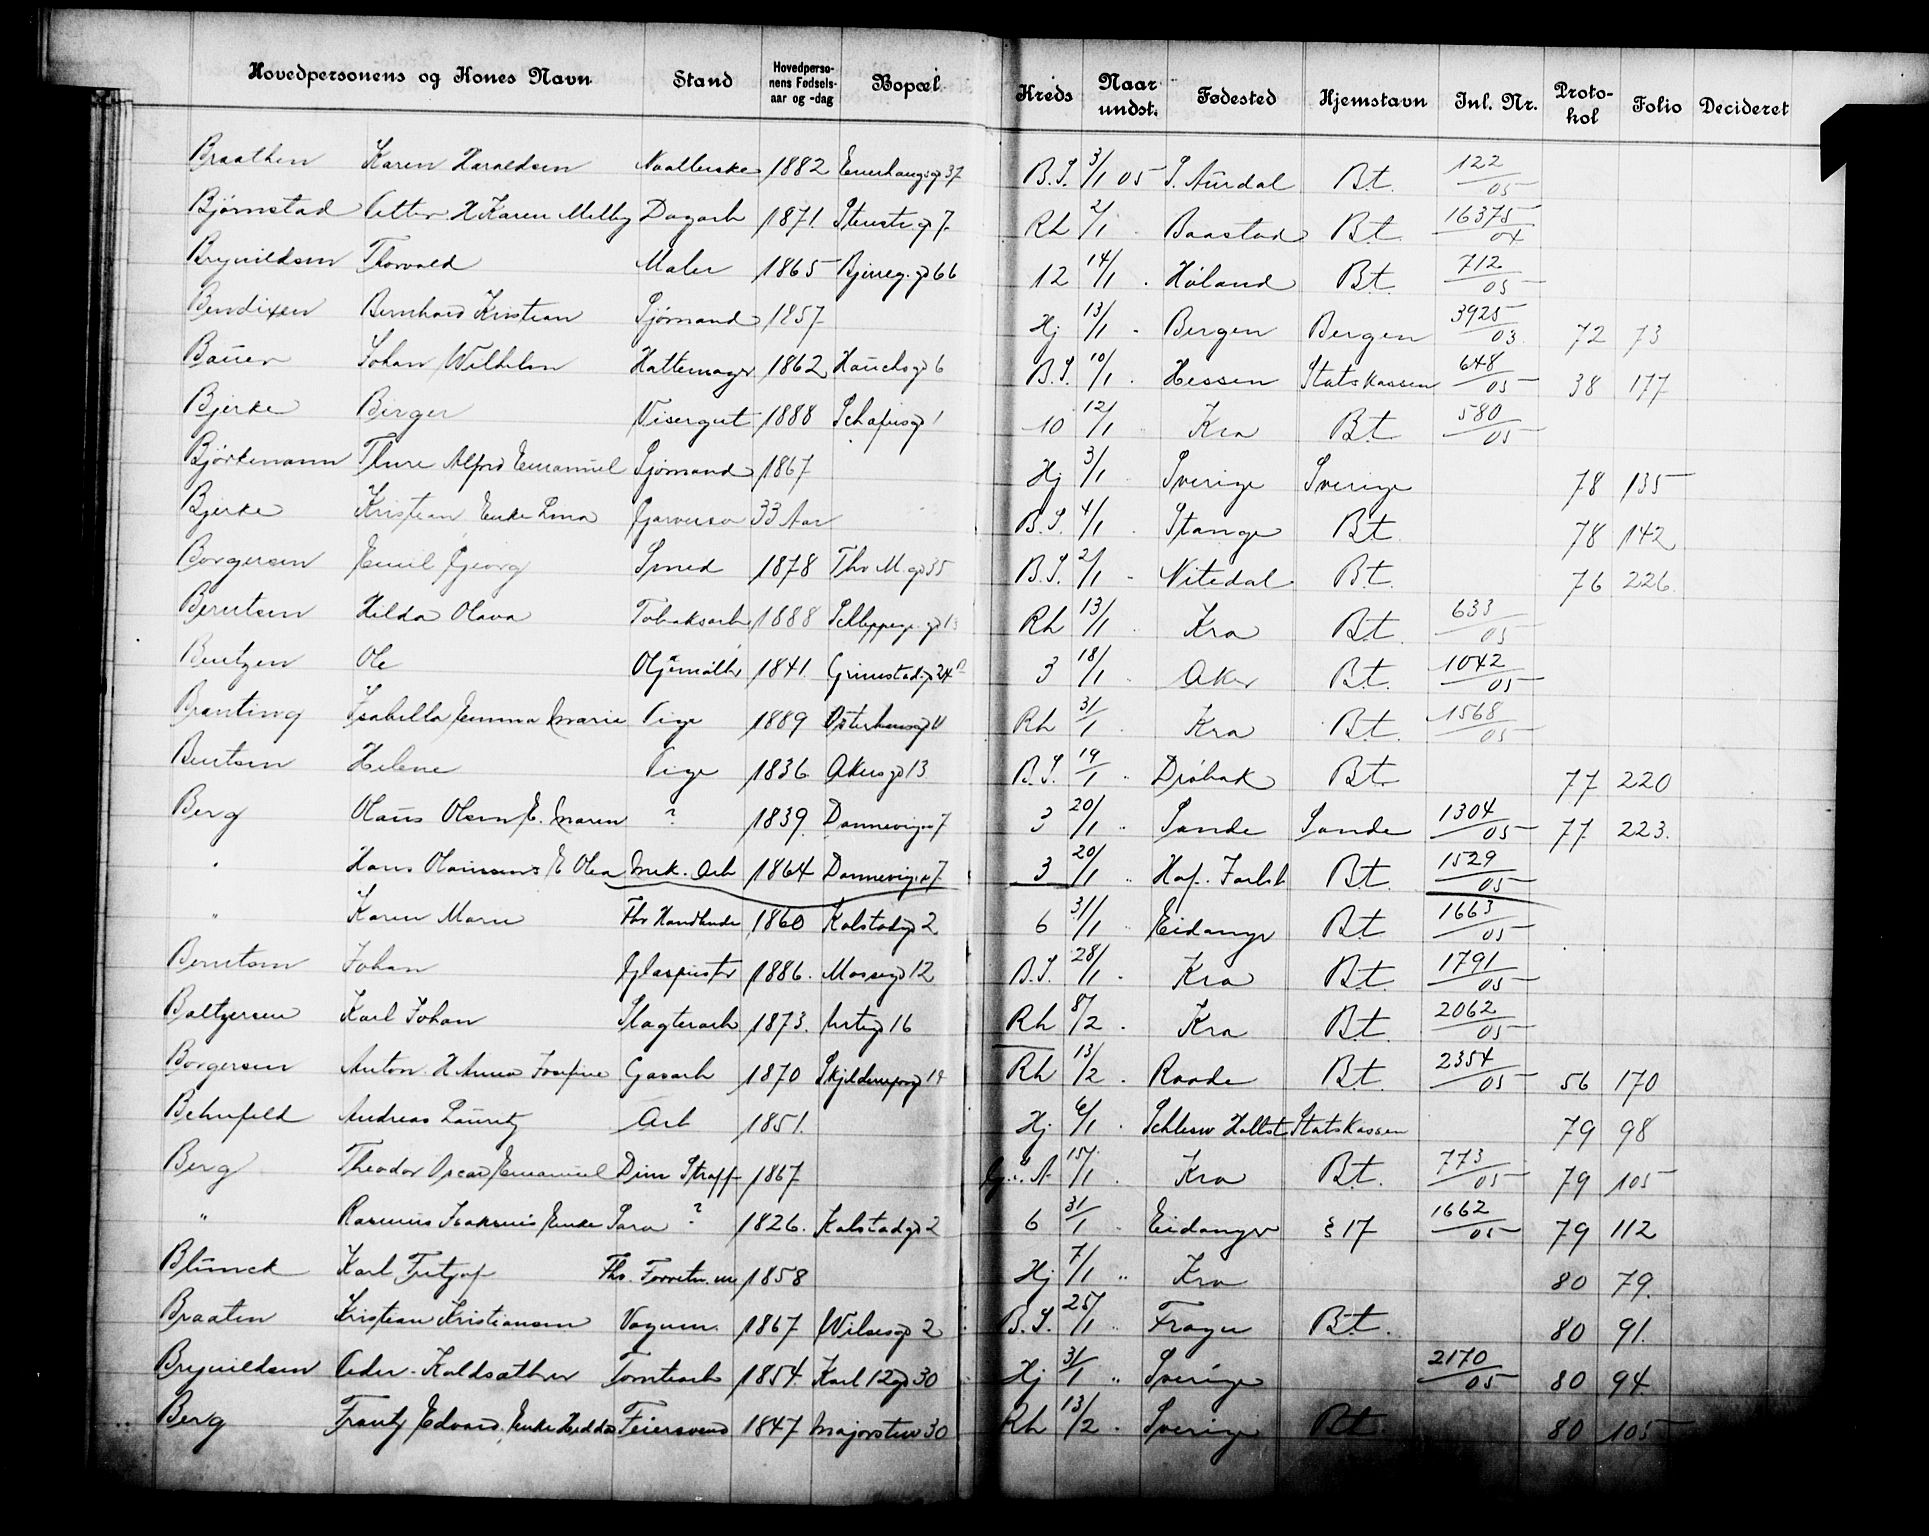 Hovedpersonens og Kones Navn Stand Hovedpersonens Fødselsaar og -dag Bopæl Kreds Naar undst. Fødested Hjemstavn Inl. Nr. Protokol Folio Decideret
Braathen Karen Haraldsen 1882 37 B.S. 3/1 05 S. Aurdal Bt. 122/05
Bjørnstad H. Karen Melby Dagarb 1871. 7 Rh 2/1 Baastad Bt. 16375/04
Brynildsen Thorvald Maler 1865 66 12 14/1 Høland Bt. 712/05
Bendixen Bernhard Kristian Sjømand 1857 Hj 13/1 Bergen Bergen 3925/03 72 73
Bauer Johan Wilhelm Hattemager 1862 Hauchsgd 6 B.S. 10/1 Hessen Statskassen 648/05 38 177
Bjerke Birger Visergut 1888 Schafusgd 1 10 12/1 Kra Bt 580/05
Björkemann Thure Alfred Emanuel Sjømand 1867 Hj 3/1 Sverige Sverige 78 135
Bjerke Kristian, Enke Lina 33 Aar B.S. 4/1 Stange Bt 78 142
Borgersen Emil Georg Smed 1878 Thv M. gd 35 B.S. 2/1 Nitedal Bt. 76 226
Berntsen Hilda Olava Tobaksarb 1888 13 Rh 13/1 Kra Bt. 633/05
Bentzen Ole 1841. Grimstadgd 24 3 18/1 Aker Bt. 1042/05
Branting Isabella Emma Marie Pige 1889 Østerhausgd 11 Rh 31/1 Kra Bt. 1568/05
Bentsen Helene Pige 1836 Akersgd 13 B.S. 19/1 Drøbak Bt. 77 220
Berg Olaus Olsen E. Maren ? 1839. Dannevigsv 7 3 20/1 Sande Sande 1304/05 77 223.
" Hans E Olea Mek. Arb 1864 Dannevigsv 7 3 20/1 Hof. Jarlsb Bt. 1529/05
" Karen Marie Fhv Handlende 1860 Kalstadgd 2 6 31/1 Eidanger Bt. 1663/05
Berntsen Johan Glaspuster 1886. Mossegd 12 B.S. 28/1 Kra Bt. 1791/05
Baltzersen Karl Johan Slagterarb 1873. Urtegd 16 Rh 8/2 Kra Bt. 2062/05
Borgersen Anton H. Anna Josefine Gasarb 1870 19 Rh 13/2 Raade Bt. 2354/05 56 170
Behnfeld Andreas Lauritz Arb 1851. Hj. 6/1 Schlesw Holst Statskassen 79 98
Berg Theodor Oscar Emanuel Dim Straff 1867 15/1 Kra Bt. 773/05 79 105
" Rasmus Isaksens Enke Sara ? 1826. Kalstadgd 2 6 31/1 Eidanger § 17 1662/05 79 112
Blunck Karl Fritjof Fhv. 1858 Hj 7/1 " Kra 80 79.
Braaten Kristian Kristiansen Vognm. 1867 Wilsesgd 2 B.S. 25/1 Bt. 80 91.
Brynildsen Peder Tomtearb 1854. Karl 12gd 30 Hj 31/1 " Sverige 2170/05 80 94
Berg Frantz Edvard, Enke Hedda Feiersvend 1847 Majorstuv 30 Rh 13/2 Sverige Bt. 80 105